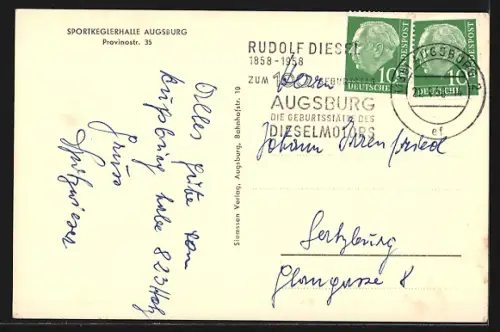 SPORTKEGLERHALLE AUGSBURG
Provinostr. 35
Alles gute von
Augsburg habe 823 Holz
Gruss
Siemssen Verlag, Augsburg, Bahnhofstr. 10
RUDOLF DIESEL
1858-1958
ZUM 100. GEBURTSTAG
AUGSBURG
DIE GEBURTSSTÄTTE DES
DIESELMOTORS
10
DEUTSCHE BUNDESPOST
10
DEUTSCHE BUNDESPOST
AUGSBURG 2
ef
Herrn
Johann Ehrenfried
Salzburg
Glangasse 8